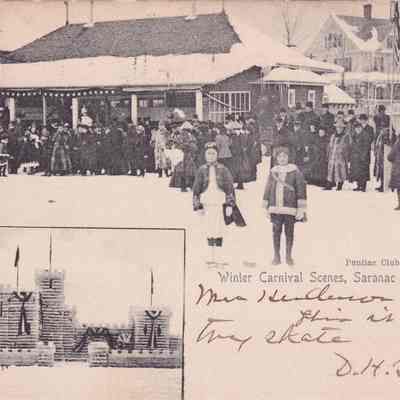 Pontiac Club
Winter Carnival Scenes, Saranac
Mrs Henderson
This is
try skate
D.H.